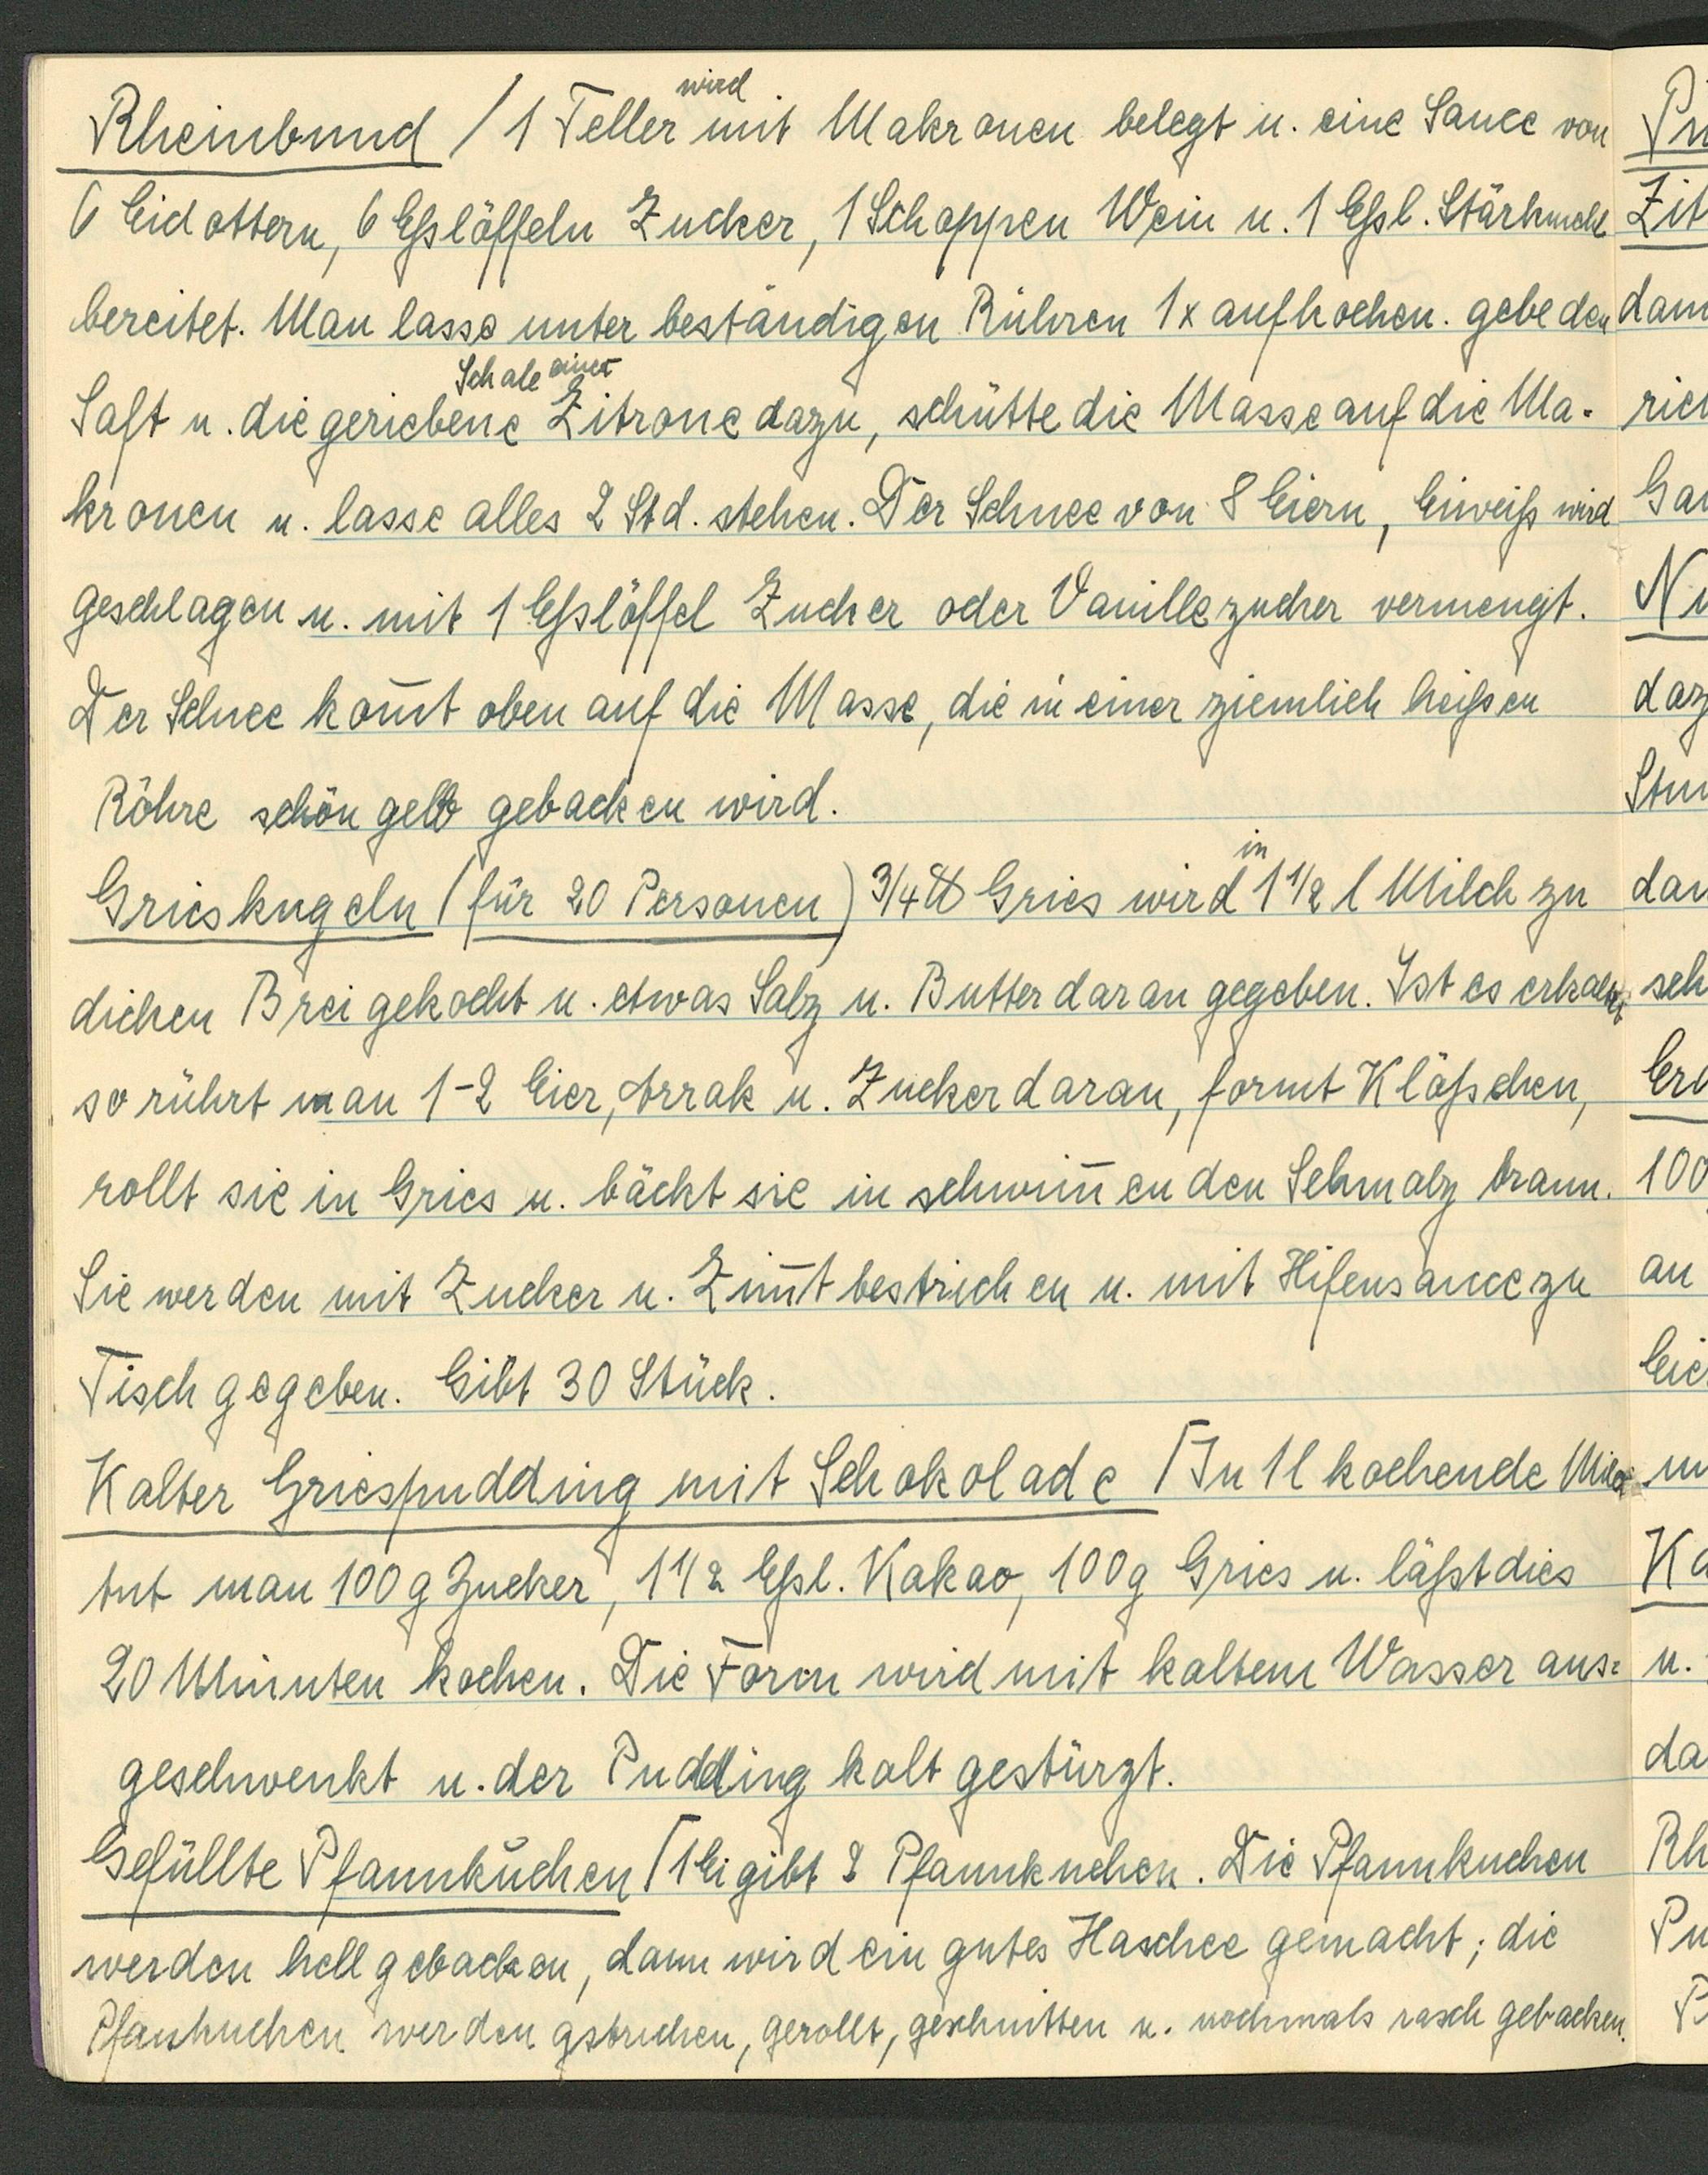 Rheinbund / 1 Teller wird mit Makronen belegt u. eine Sauce von
6 Eidottern, 6 Eßlöffeln Zucker, 1 Schoppen Wein u. 1 Eßl. Stärkmehl
bereitet. Man lasse unter beständigen Rühren 1x aufkochen. gebe den
Saft u. die geriebene Schale einer Zitrone dazu, schütte die Masse auf die Ma-
kronen u. lasse alles 2 Std. stehen. Der Schnee von 8 Eiern, Eiweiß wird
geschlagen u. mit 1 Eßlöffel Zucker oder Vanillezucker vermengt.
Der Schnee kom̄t oben auf die Masse, die in einer ziemlich heißen
Röhre schön gelb gebacken wird.
Grieskugeln (für 20 Personen) 3/4 ℔ Gries wird in 1 1/2 l Milch zu
dicken Brei gekocht u. etwas Salz u. Butter daran gegeben. Ist es erkaltet
so rührt man 1-2 Eier, Arrak u. Zucker daran, formt Klößchen,
rollt sie in Gries u. bäckt sie in schwim̄enden Schmalz braun.
Sie werden mit Zucker u. Zim̄t bestrichen u. mit Hifensauce zu
Tisch gegeben. Gibt 30 Stück.
Kalter Griespudding mit Schokolade / In 1 l kochende Milch
tut man 100 g Zucker, 1 1/2 Eßl. Kakao, 100 g Gries u. läßt dies
20 Minuten kochen. Die Form wird mit kaltem Wasser aus=
geschwenkt u. der Pudding kalt gestürzt.
Gefüllte Pfannkuchen / 1 Ei gibt 2 Pfannkuchen. Die Pfannkuchen
werden hell gebacken, dann wird ein gutes Haschee gemacht; die
Pfankuchen werden gstrichen, gerollt, geschnitten u. nochmals rasch gebacken.